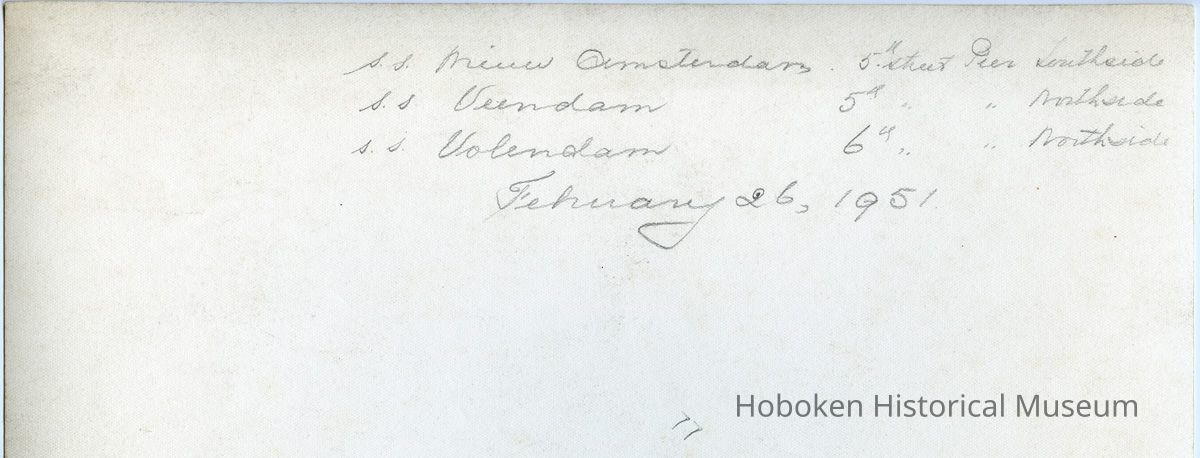 s.s. Nieuw Amsterdam. 5th street Pier Southside
s.s Veendam 5th " " Northside
s.s. Volendam 6th " " Northside
February 26, 1951
Hoboken Historical Museum
77